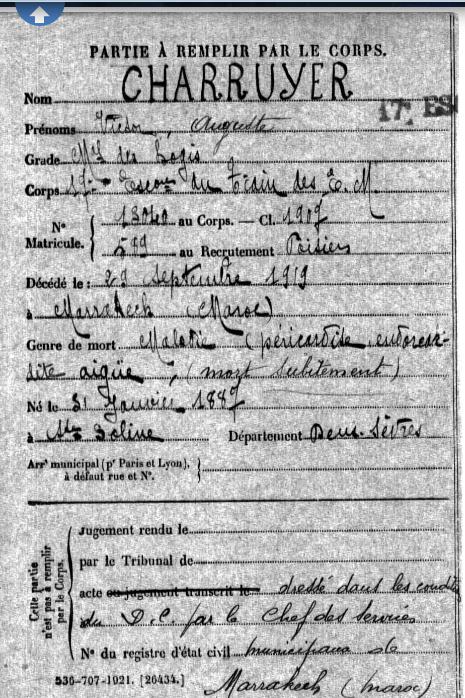 PARTIE À REMPLIR PAR LE CORPS.
Nom CHARRUYER
17e ES
Prénoms Auguste
Grade Mal des Logis
Corps 17e Escon du Train des E. M.
No Matricule. { 13040 au Corps. — Cl. 1907
599 au Recrutement Poitiers
Décédé le : 29 Septembre 1919
à Marrakech (Maroc)
Genre de mort Maladie (péricardite, endocar-
dite aigüe ; (mort subitement)
Né le 31 Janvier 1887
à Ste Soline Département Deux-Sèvres
Arrt municipal (pr Paris et Lyon), à défaut rue et No. }
Cette partie n'est pas à remplir par le Corps.
Jugement rendu le
par le Tribunal de
acte ou jugement transcrit le dressé dans les condit
du D.C. par le Chef des Services
No du registre d'état civil municipaux de
Marrakech (Maroc)
536-707-1921. [26434.]